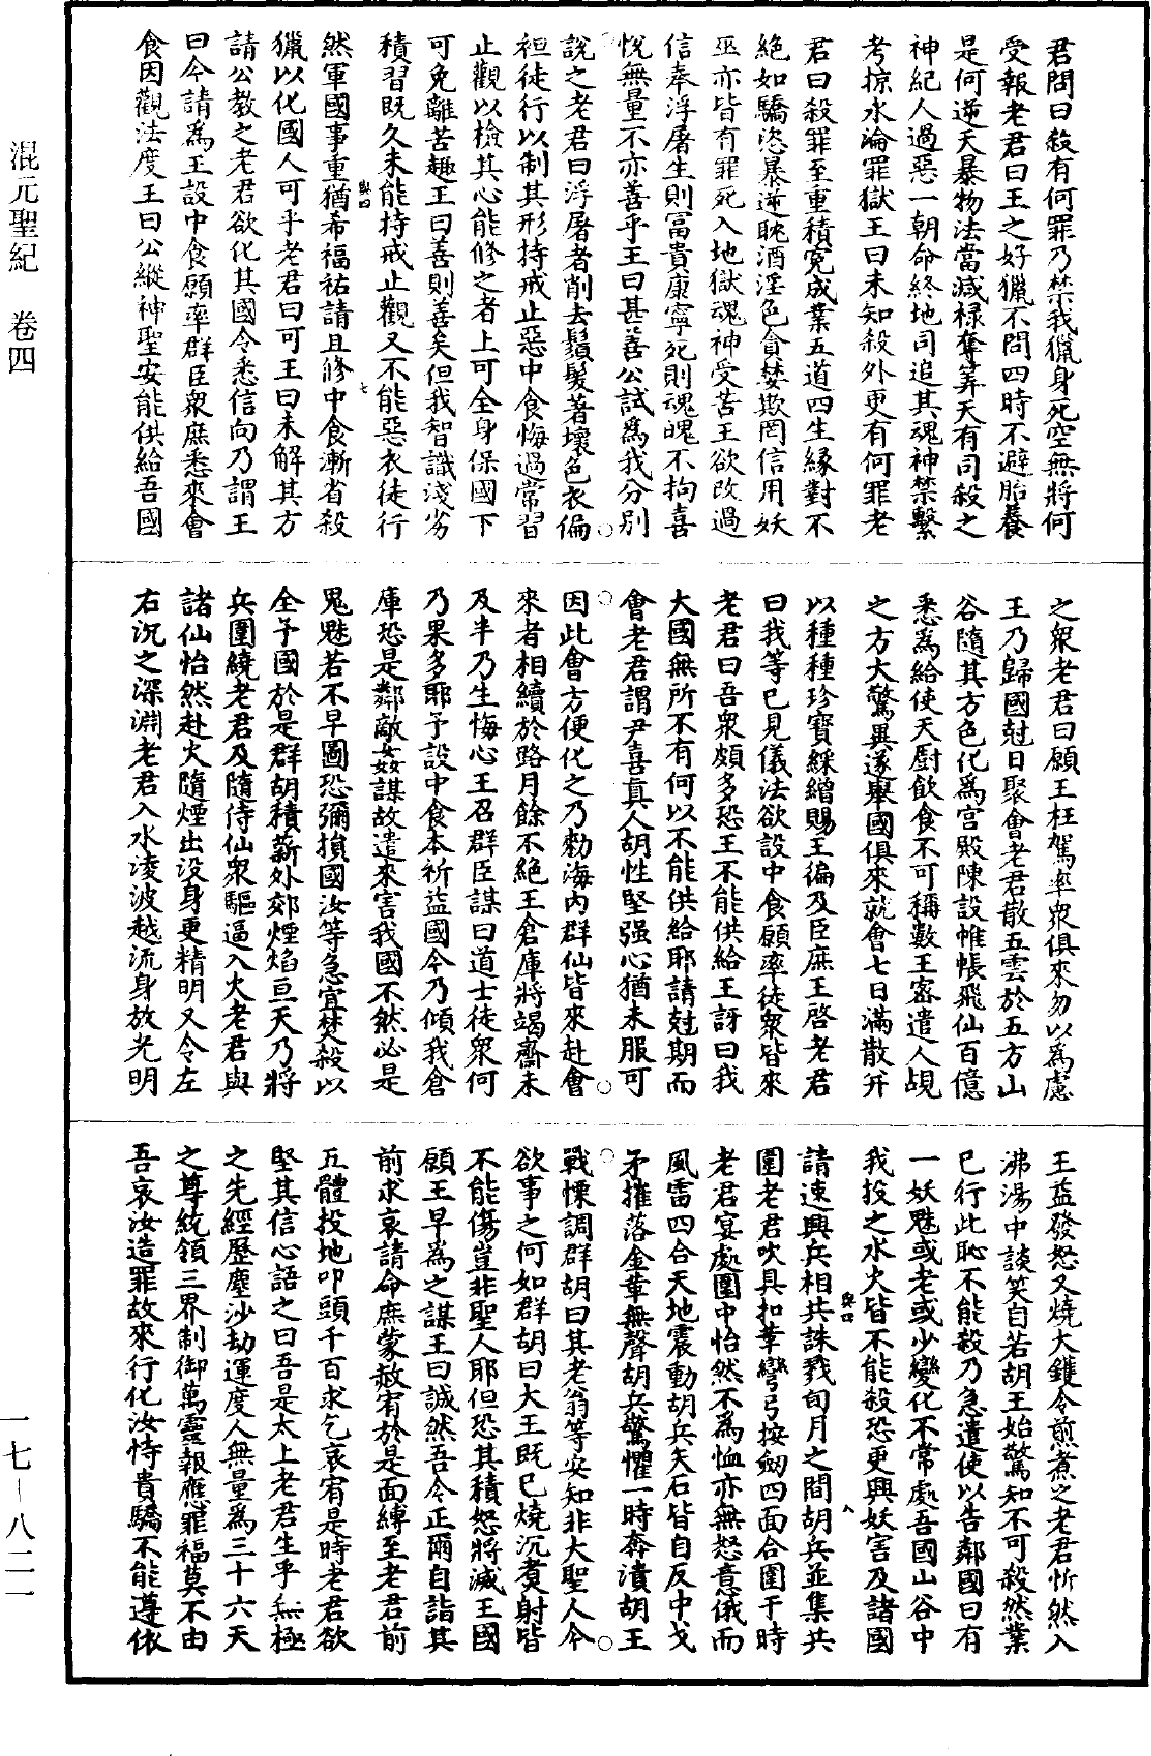 君問曰殺有何罪乃禁我獵身死空無將何
受報老君曰王之好獵不問四時不避胎養
是何逆天暴物法當減祿奪筭天有司殺之
神紀人過惡一朝命終地司追其魂神禁繫
考掠水淪罪獄王曰未知殺外更有何罪老
君曰殺罪至重積寃成業五道四生緣對不
絕如驕恣暴逆耽酒淫色貪婪欺罔信用妖
巫亦皆有罪死入地獄魂神受苦王欲改過
信奉浮屠生則富貴康寧死則魂魄不拘喜
悅無量不亦善乎王曰甚善公試為我分別
說之老君曰浮屠者削去鬚髮著壞色衣偏
袒徒行以制其形持戒止惡中食悔過常習
止觀以檢其心能修之者上可全身保國下
可免離苦趣王曰善則善矣但我智識淺劣
積習既久未能持戒止觀又不能惡衣徒行
然軍國事重猶希福祐請且修中食漸省殺
獵以化國人可乎老君曰可王曰未解其方
請公教之老君欲化其國令悉信向乃謂王
曰今請為王設中食願率群臣眾庶悉來會
食因觀法度王曰公縱神聖安能供給吾國
之眾老君曰願王枉駕率眾俱來勿以為慮
王乃歸國尅日聚會老君散五雲於五方山
谷隨其方色化為宮殿陳設帷帳飛仙百億
悉為給使天廚飲食不可稱數王密遣人覘
之方大驚異遂舉國俱來就會七日滿散幷
以種種珍寶綵繒賜王徧及臣庶王啓老君
曰我等已見儀法欲設中食願率徒眾皆來
老君曰吾眾頗多恐王不能供給王訝曰我
大國無所不有何以不能供給耶請尅期而
會老君謂尹喜真人胡性堅强心猶未服可
因此會方便化之乃勑海內群仙皆來赴會
來者相續於路月餘不絕王倉庫將竭齋未
及半乃生悔心王召群臣謀曰道士徒眾何
乃果多耶予設中食本祈益國今乃傾我倉
庫恐是鄰敵姦謀故遣來害我國不然必是
鬼魅若不早圖恐彌損國汝等急宜焚殺以
全予國於是群胡積薪外郊煙焰亘天乃將
兵圍繞老君及隨侍仙眾驅逼入火老君與
諸仙怡然赴火隨煙出没身更精明又令左
右沉之深淵老君入水淩波越流身放光明
王益發怒又燒大鑊令煎煮之老君忻然入
沸湯中談笑自若胡王始驚知不可殺然業
已行此恥不能殺乃急遣使以告鄰國曰有
一妖魅或老或少變化不常處吾國山谷中
我投之水火皆不能殺恐更興妖害及諸國
請速興兵相共誅戮旬月之間胡兵並集共
圍老君吹具扣革彎弓按劒四面合圍于時
老君宴處圍中怡然不為恤亦無怒意俄而
風雷四合天地震動胡兵矢石皆自反中戈
矛摧落金革無聲胡兵驚懼一時奔潰胡王
戰慄調群胡曰其老翁等安知非大聖人今
欲事之何如群胡曰大王既已燒沉煑射皆
不能傷豈非聖人耶但恐其積怒將滅王國
願王早為之謀王曰誠然吾今正爾自詣其
前求哀請命庶蒙赦宥於是面縛至老君前
五體投地叩頭千百求乞哀宥是時老君欲
堅其信心語之曰吾是太上老君生乎無極
之先經歷塵沙劫運度人無量為三十六天
之尊統領三界制御萬靈報應罪福莫不由
吾哀汝造罪故來行化汝恃貴驕不能遵依
混元聖紀　卷四
一七—八二一
七
八